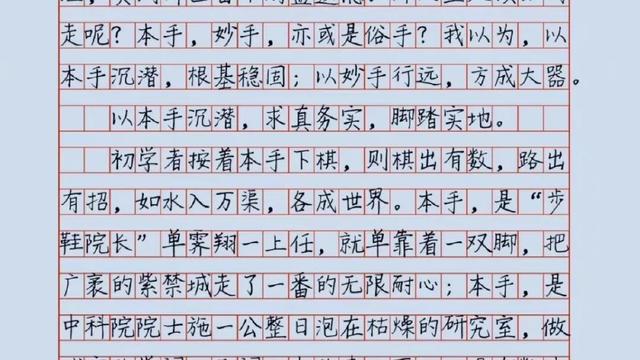 走呢？本手，妙手，亦或是俗手？我以为，以
本手沉潜，根基稳固；以妙手行远，方成大器。
以本手沉潜，求真务实，脚踏实地。
初学者按着本手下棋，则棋出有数，路出
有招，如水入万渠，各成世界。本手，是“步
鞋院长”单霁翔一上任，就单靠着一双脚，把
广袤的紫禁城走了一番的无限耐心；本手，是
中科院院士施一公整日泡在枯燥的研究室，做